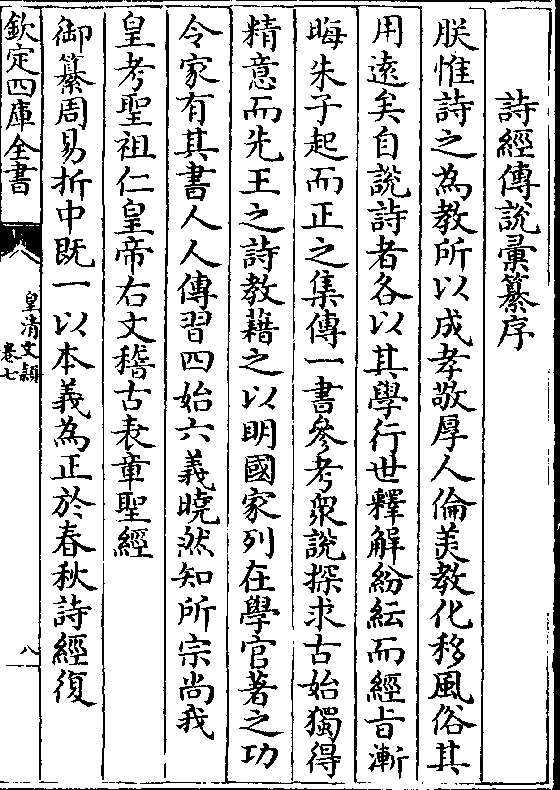 詩經傳說彙纂序
朕惟詩之為教所以成孝敬厚人倫美教化移風俗其
用遠矣自說詩者各以其學行世釋解紛紜而經㫖漸
晦朱子起而正之集傳一書參考衆說探求古始獨得
精意而先王之詩教藉之以明國家列在學官著之功
令家有其書人人傳習四始六義曉然知所宗尚我
皇考聖祖仁皇帝右文稽古表章聖經
御纂周易折中既一以本義為正於春秋詩經復
欽定四庫全書
皇清文穎
卷七
八